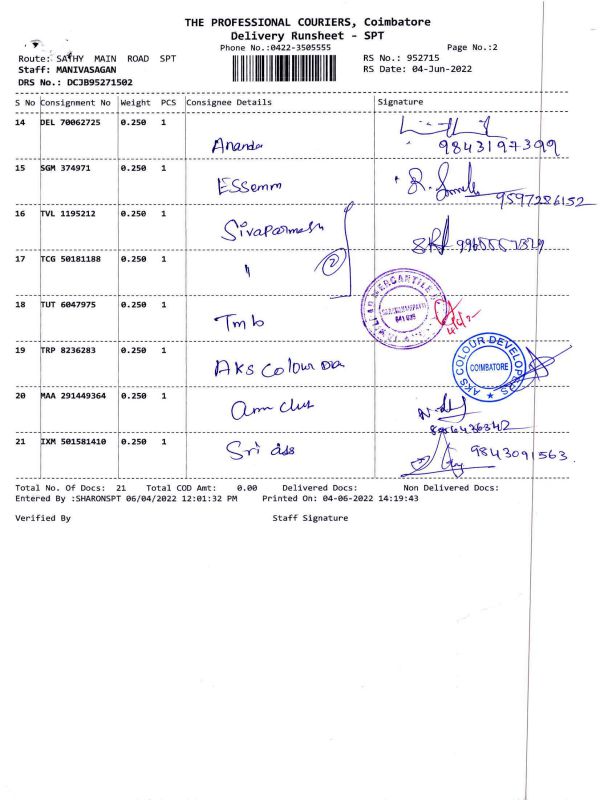 THE PROFESSIONAL COURIERS, Coimbatore
Delivery Runsheet - SPT
Phone No.:0422-3505555 Page No.:2
Route: SATHY MAIN ROAD SPT RS No.: 952715
Staff: MANIVASAGAN RS Date: 04-Jun-2022
DRS No.: DCJB95271502
S No Consignment No Weight PCS Consignee Details Signature
14 DEL 70062725 0.250 1
Ananda 9843197399
15 SGM 374971 0.250 1
ESSemm 9597286152
16 TVL 1195212 0.250 1
17 TCG 50181188 0.250 1
" 2
18 TUT 6047975 0.250 1
Tmb
19 TRP 8236283 0.250 1
AKS Colour
AKS COLOUR DEVELOPERS
COIMBATORE
20 MAA 291449364 0.250 1
21 IXM 501581410 0.250 1
Sri 9843091563
Total No. Of Docs: 21 Total COD Amt: 0.00 Delivered Docs: Non Delivered Docs:
Entered By :SHARONSPT 06/04/2022 12:01:32 PM Printed On: 04-06-2022 14:19:43
Verified By Staff Signature